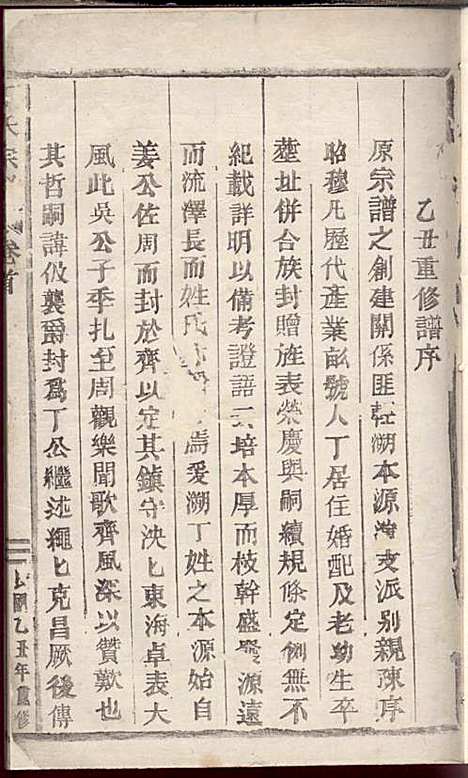 乙丑重修譜序
原宗譜之創建關係匪輕溯本源清支派別親疎序
昭穆凡歷代產業畝號人丁居住婚配及老幼生卒
塋址併合族封贈旌表榮慶與嗣續規條定例無不
紀載詳明以備考證語云培本厚而枝幹盛源遠
而流澤長而姓氏焉爰溯丁姓之本源始自
姜公佐周而封於齊以定其鎮守泱匕東海卓表大
風此吳公子季扎至周觀樂聞歌齊風深以贊歎也
其哲嗣諱伋襲爵封爲丁公繼述繩匕克昌厥後傳
氏宗 卷首
民國乙丑年重修